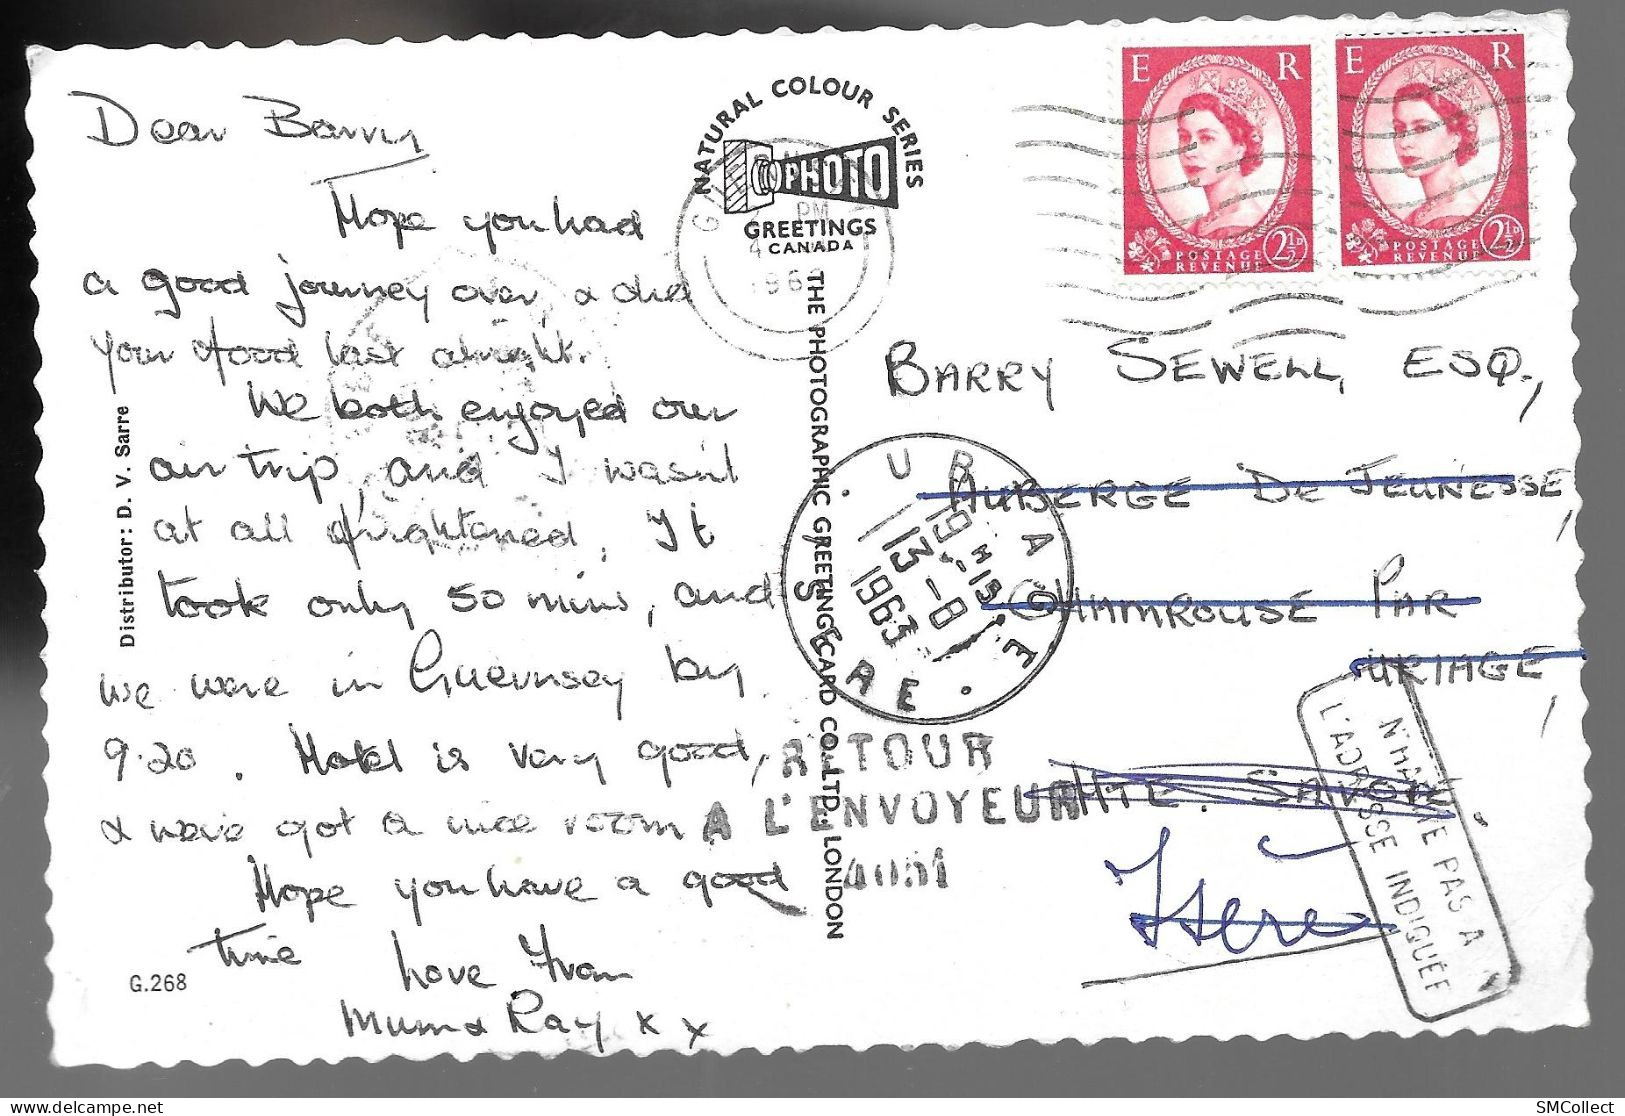 Dear Barry
Hope you had
a good journey over, & did
your food last alright.
We both enjoyed our
air trip, and I wasn't
at all frightened. It
took only 50 mins, and
we were in Guernsey by
9.20. Hotel is very good,
& we've got a nice room
Hope you have a good
time
Love from
Mum & Ray x x
Distributor: D. V. Sarre
G.268
NATURAL COLOUR SERIES
PHOTO
GREETINGS
CANADA
THE PHOTOGRAPHIC GREETING CARD CO. LTD. LONDON
PM
E R
POSTAGE
REVENUE 2½D
E R
POSTAGE
REVENUE 2½D
BARRY SEWELL, ESQ.,
AUBERGE DE JEUNESSE,
CHAMROUSE PAR
URIAGE,
HTE. SAVOIE.
Isère
19H15
13-8
1963
RETOUR
A L'ENVOYEUR
4051
N'HABITE PAS A
L'ADRESSE INDIQUÉE
SMCollect